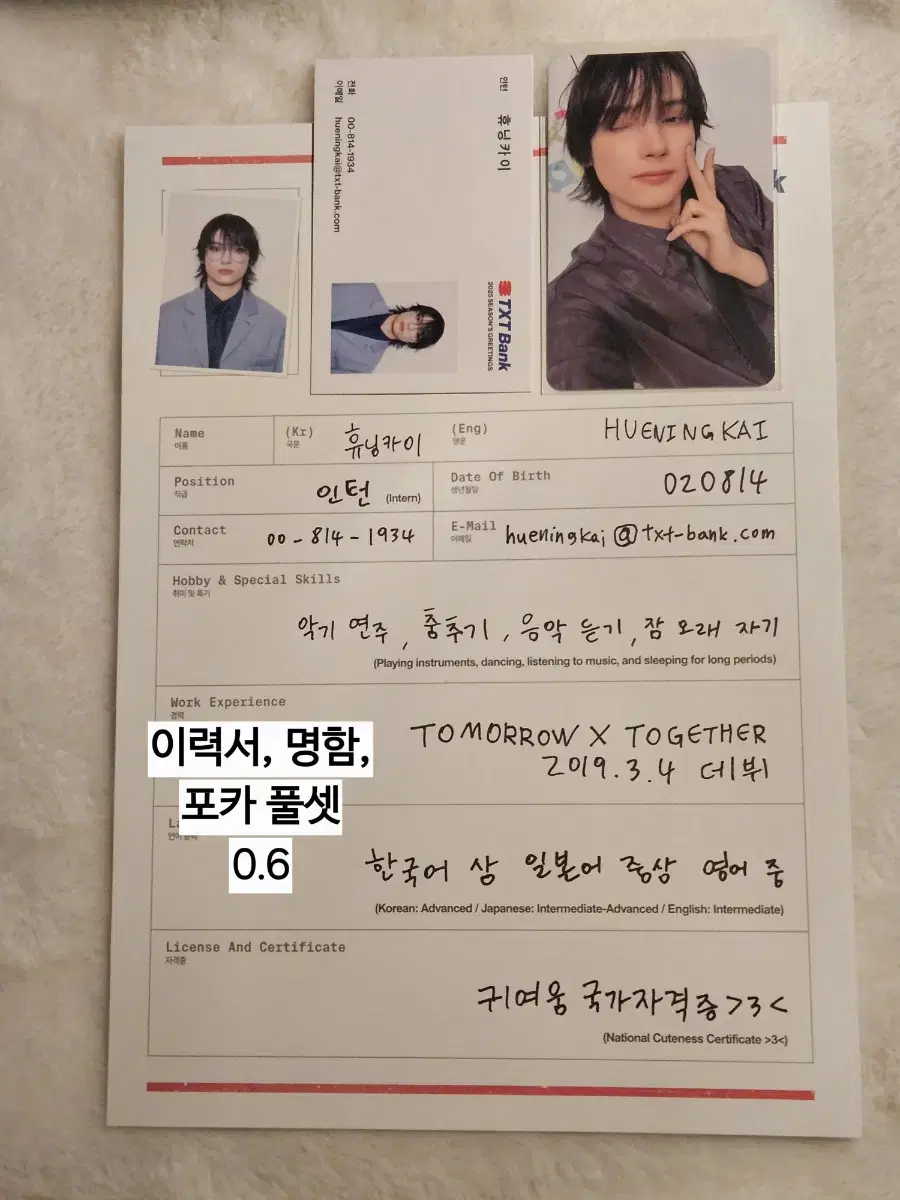 인턴 휴닝카이
전화 00-814-1934
이메일 hueningkai@txt-bank.com
TXT Bank
2025 SEASON'S GREETINGS
k
Name
이름
(Kr)
국문
휴닝카이
(Eng)
영문
HUENINGKAI
Position
직급
인턴 (Intern)
Date Of Birth
생년월일
020814
Contact
연락처
00-814-1934
E-Mail
이메일
hueningkai@txt-bank.com
Hobby & Special Skills
취미 및 특기
악기 연주, 춤추기, 음악 듣기, 잠 오래 자기
(Playing instruments, dancing, listening to music, and sleeping for long periods)
Work Experience
경력
TOMORROW X TOGETHER
2019.3.4 데뷔
이력서, 명함,
포카 풀셋
0.6
한국어 상 일본어 중상 영어 중
(Korean: Advanced / Japanese: Intermediate-Advanced / English: Intermediate)
License And Certificate
자격증
귀여움 국가자격증 >3<
(National Cuteness Certificate >3<)